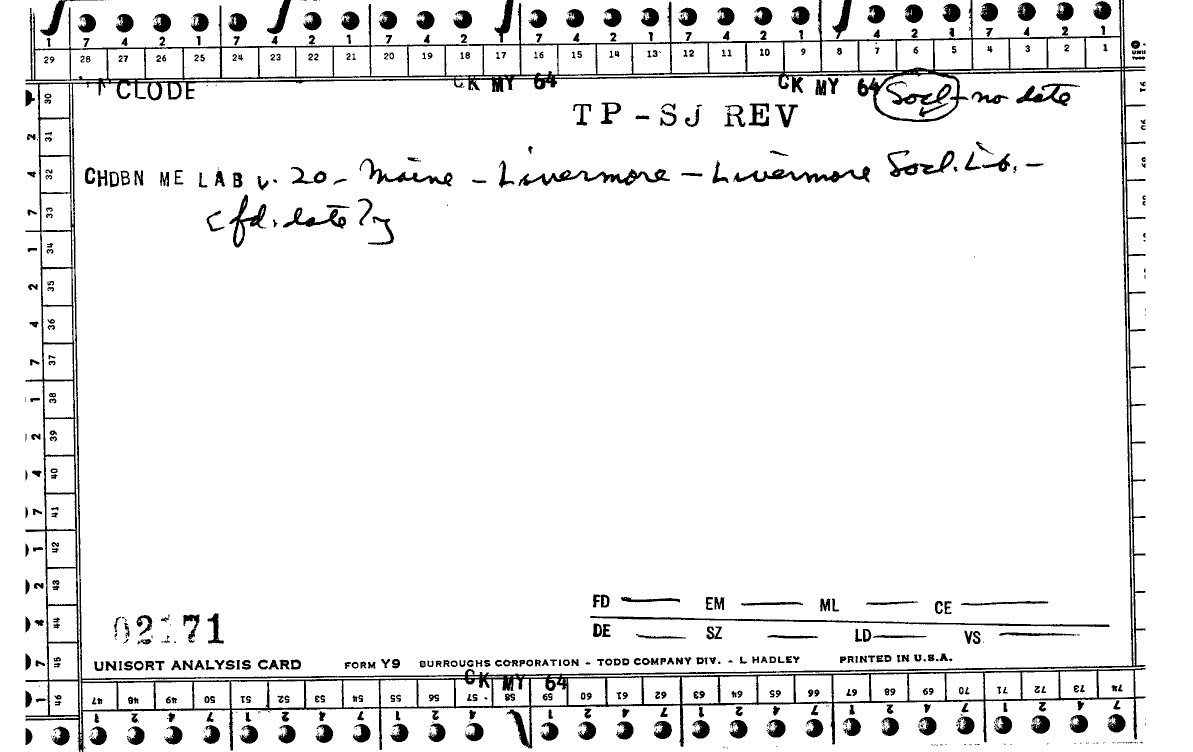 7 4 2 1 7 4 2 1 7 4 2 1 7 4 2 1 7 4 2 1 7 4 2 1 7 4 2 1
29 28 27 26 25 24 23 22 21 20 19 18 17 16 15 14 13 12 11 10 9 8 7 6 5 4 3 2 1
CLODE CK MY 64 CK MY 64 Socl - no date
TP-SJ REV
CHDBN ME LAB v. 20 - Maine - Livermore - Livermore Socl. Lib. -
<fd. date?>
30
2 31
4 32
7 33
1 34
2 35
4 36
7 37
1 38
2 39
4 40
7 41
1 42
2 43
4 44
7 45
1 46
FD EM ML CE
DE SZ LD VS
02171
UNISORT ANALYSIS CARD FORM Y9 BURROUGHS CORPORATION - TODD COMPANY DIV. - L HADLEY PRINTED IN U.S.A.
CK MY 64
47 48 49 50 51 52 53 54 55 56 57 58 59 60 61 62 63 64 65 66 67 68 69 70 71 72 73 74
1 2 4 7 1 2 4 7 1 2 4 1 2 4 7 1 2 4 7 1 2 4 7 1 2 4 7